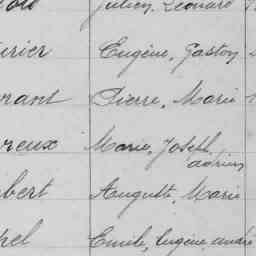 Julien, Léonard
urier Eugène, Gaston
rant Pierre, Marie
reux Marie, Joseph
adrien
bert Auguste, Marie
el Emile, Eugène, andré